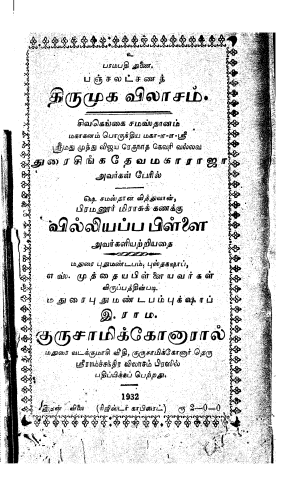 உ
பாம்பதி துணை.
பஞ்சலட்சணத்
திருமுக விலாசம்.
சிவகெங்கை சமஸ்தானம்
மகாகனம் பொருந்திய மகா-ஏ-ஏ-ஸ்ரீ
ஸ்ரீமது முத்து விஜய ரெகுநாத கெவுரி வல்லவ
துரைசிங்கதேவமகாராஜா
அவர்கள் பேரில்
ஷெ சமஸ்தான வித்துவான்,
பிரமனூர் மிராசுக் கணக்கு
வில்லியப்ப பிள்ளை
அவர்களியற்றியதை
மதுரை புதுமண்டபம், புஸ்தகஷாப்,
எஸ். முத்தையபிள்ளையவர்கள்
விருப்பத்தின்படி
மதுரைபுதுமண்டபம்புக்ஷாப்
இ. ராம.
குருசாமிக்கோனாரால்
மதுரை வடக்குமாசி வீதி, குருசாமிக்கோனார் தெரு
ஸ்ரீராமச்சந்திர விலாசம் பிரஸில்
பதிப்பிக்கப் பெற்றது.
1932
இதன் விலை (ரிஜிஸ்டர் காபிரைட்) ரூ 2-0-0